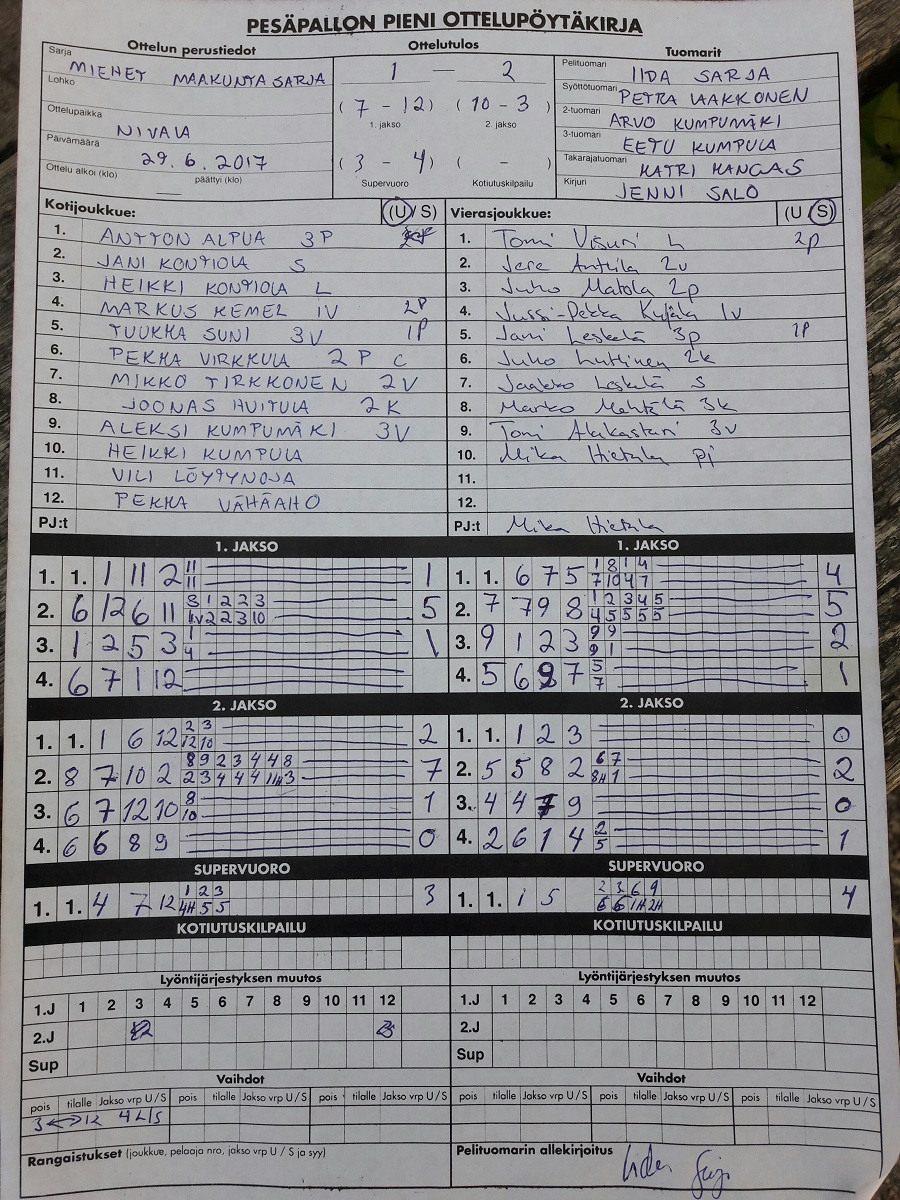 PESÄPALLON PIENI OTTELUPÖYTÄKIRJA
Ottelun perustiedot Ottelutulos Tuomarit
Sarja MIEHET MAAKUNTASARJA 1 — 2 Pelituomari IIDA SARJA
Lohko (7 - 12) (10 - 3) Syöttötuomari PETRA LAAKKONEN
Ottelupaikka NIVALA 1. jakso 2. jakso 2-tuomari ARVO KUMPUMÄKI
Päivämäärä 29.6.2017 (3 - 4) ( - ) 3-tuomari EETU KUMPULA
Ottelu alkoi (klo) päättyi (klo) Supervuoro Kotiutuskilpailu Takarajatuomari KATRI KANGAS
Kirjuri JENNI SALO
Kotijoukkue: (U / S) Vierasjoukkue: (U / S)
1. ANTTON ALPUA 3P 1. Tomi Visuri L 2p
2. JANI KONTIOLA S 2. Jere Anttila 2v
3. HEIKKI KONTIOLA L 3. Juho Matola 2p
4. MARKUS KEMEL 1V 2P 4. Jussi-Pekka Kujala 1v
5. TUUKKA SUNI 3V 1P 5. Jani Leskelä 3p 1P
6. PEKKA VIRKKULA 2P C 6. Juho Luttinen 2k
7. MIKKO TIRKKONEN 2V 7. Jaakko Leskelä S
8. JOONAS HUITULA 2K 8. Marko Mehtälä 3k
9. ALEKSI KUMPUMÄKI 3V 9. Toni 3v
10. HEIKKI KUMPULA 10. Mika Hietala pj
11. VILI LÖYTYNOJA 11.
12. PEKKA VÄHÄAHO 12.
PJ:t PJ:t Mika Hietala
1. JAKSO 1. JAKSO
1. 1. 1 11 2 11 11 1 1. 1. 6 7 5 1 8 1 4 7 10 4 7 4
2. 6 12 6 11 3 1 2 2 3 1v 2 2 3 10 5 2. 7 7 9 8 1 2 3 4 5 4 5 5 5 5 5
3. 1 2 5 3 1 4 1 3. 9 1 2 3 9 9 9 1 2
4. 6 7 1 12 4. 5 6 7 5 7 1
2. JAKSO 2. JAKSO
1. 1. 1 6 12 2 3 12 10 2 1. 1. 1 2 3 0
2. 8 7 10 2 8 9 2 3 4 4 4 8 2 3 4 4 4 3 7 2. 5 5 8 2 6 7 8H 1 2
3. 6 7 12 10 8 10 1 3. 4 4 9 0
4. 6 6 8 9 0 4. 2 6 1 4 2 5 1
SUPERVUORO SUPERVUORO
1. 1. 4 7 12 1 2 3 4H 5 5 3 1. 1. 1 5 2 3 6 9 6 6 1H 2H 4
KOTIUTUSKILPAILU KOTIUTUSKILPAILU
Lyöntijärjestyksen muutos Lyöntijärjestyksen muutos
1.J 1 2 3 4 5 6 7 8 9 10 11 12 1.J 1 2 3 4 5 6 7 8 9 10 11 12
2.J 2.J
Sup Sup
Vaihdot Vaihdot
pois tilalle Jakso vrp U/S pois tilalle Jakso vrp U/S pois tilalle Jakso vrp U/S pois tilalle Jakso vrp U/S pois tilalle Jakso vrp U/S pois tilalle Jakso vrp U/S
3 ↔ 12
Rangaistukset (joukkue, pelaaja nro, jakso vrp U / S ja syy) Pelituomarin allekirjoitus